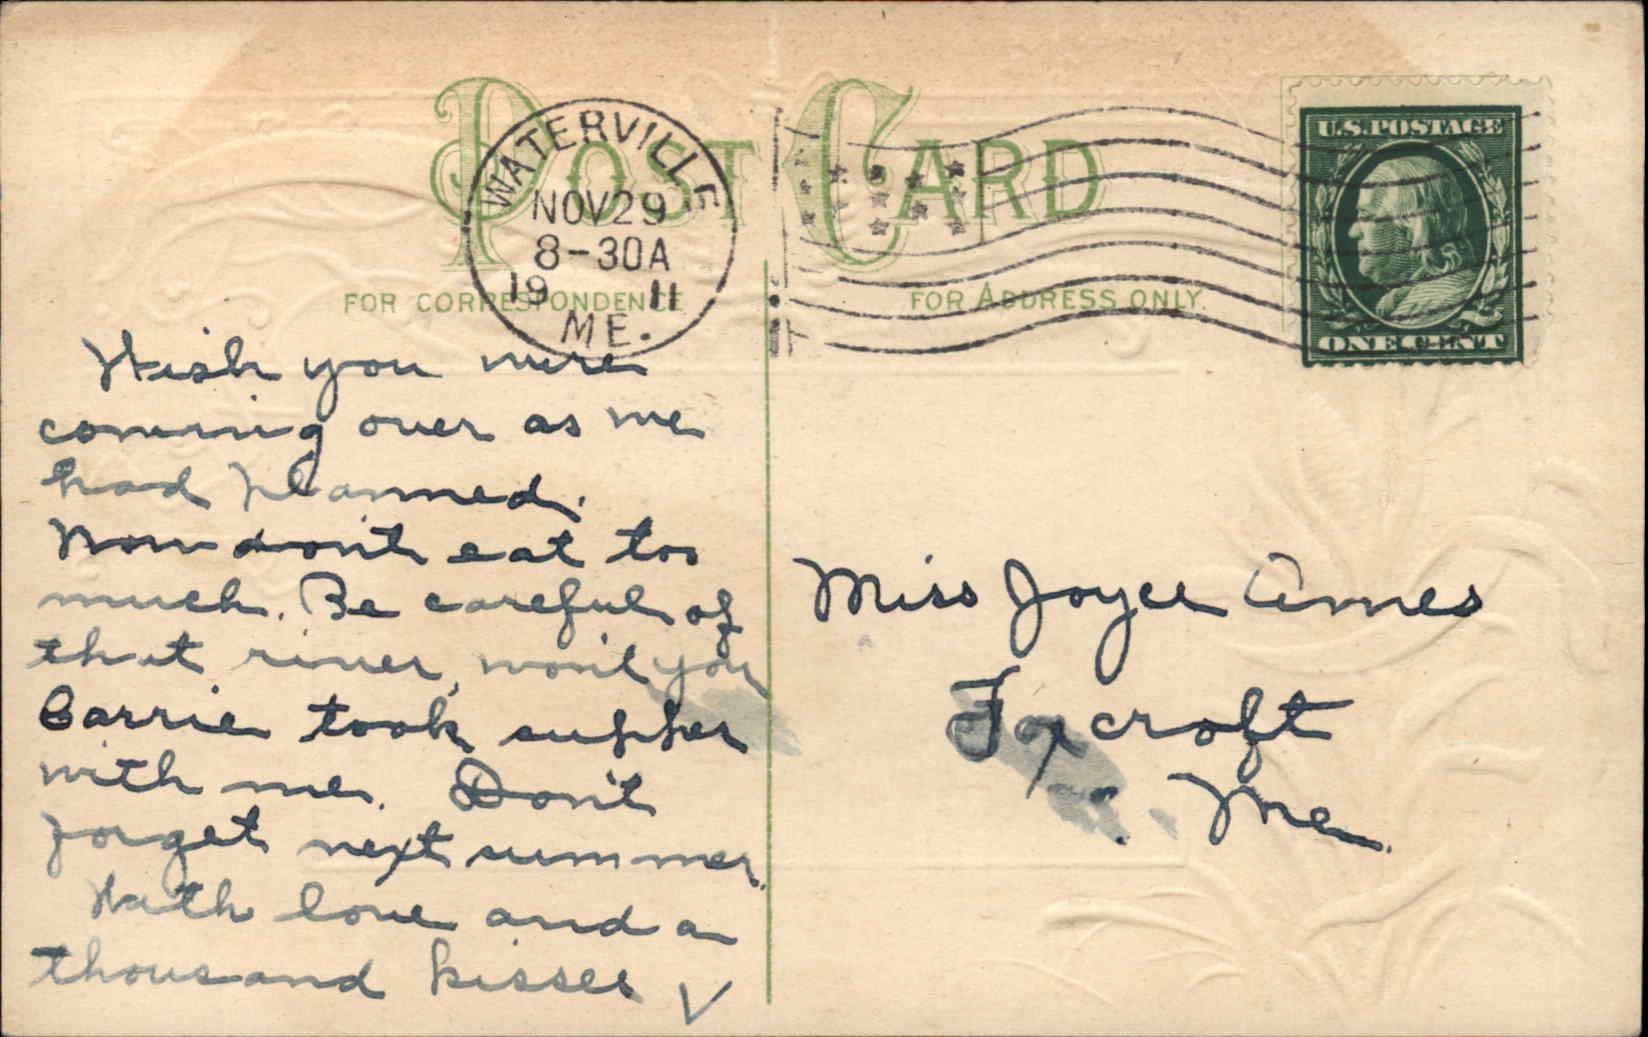 POST CARD
FOR CORRESPONDENCE
FOR ADDRESS ONLY.
WATERVILLE
NOV 29
8-30A
19 11
ME.
U.S. POSTAGE
ONE CENT
Wish you were
coming over as we
had planned.
Now don't eat too
much. Be careful of
that river, won't you
Carrie took supper
with me. Don't
forget next summer.
With love and a
thousand kisses V
Miss Joyce Ames
Foxcroft
Me.